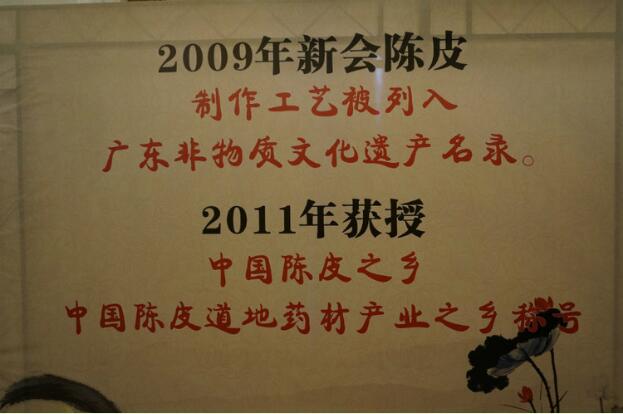 2009年新会陈皮
制作工艺被列入
广东非物质文化遗产名录。
2011年获授
中国陈皮之乡
中国陈皮道地药材产业之乡称号